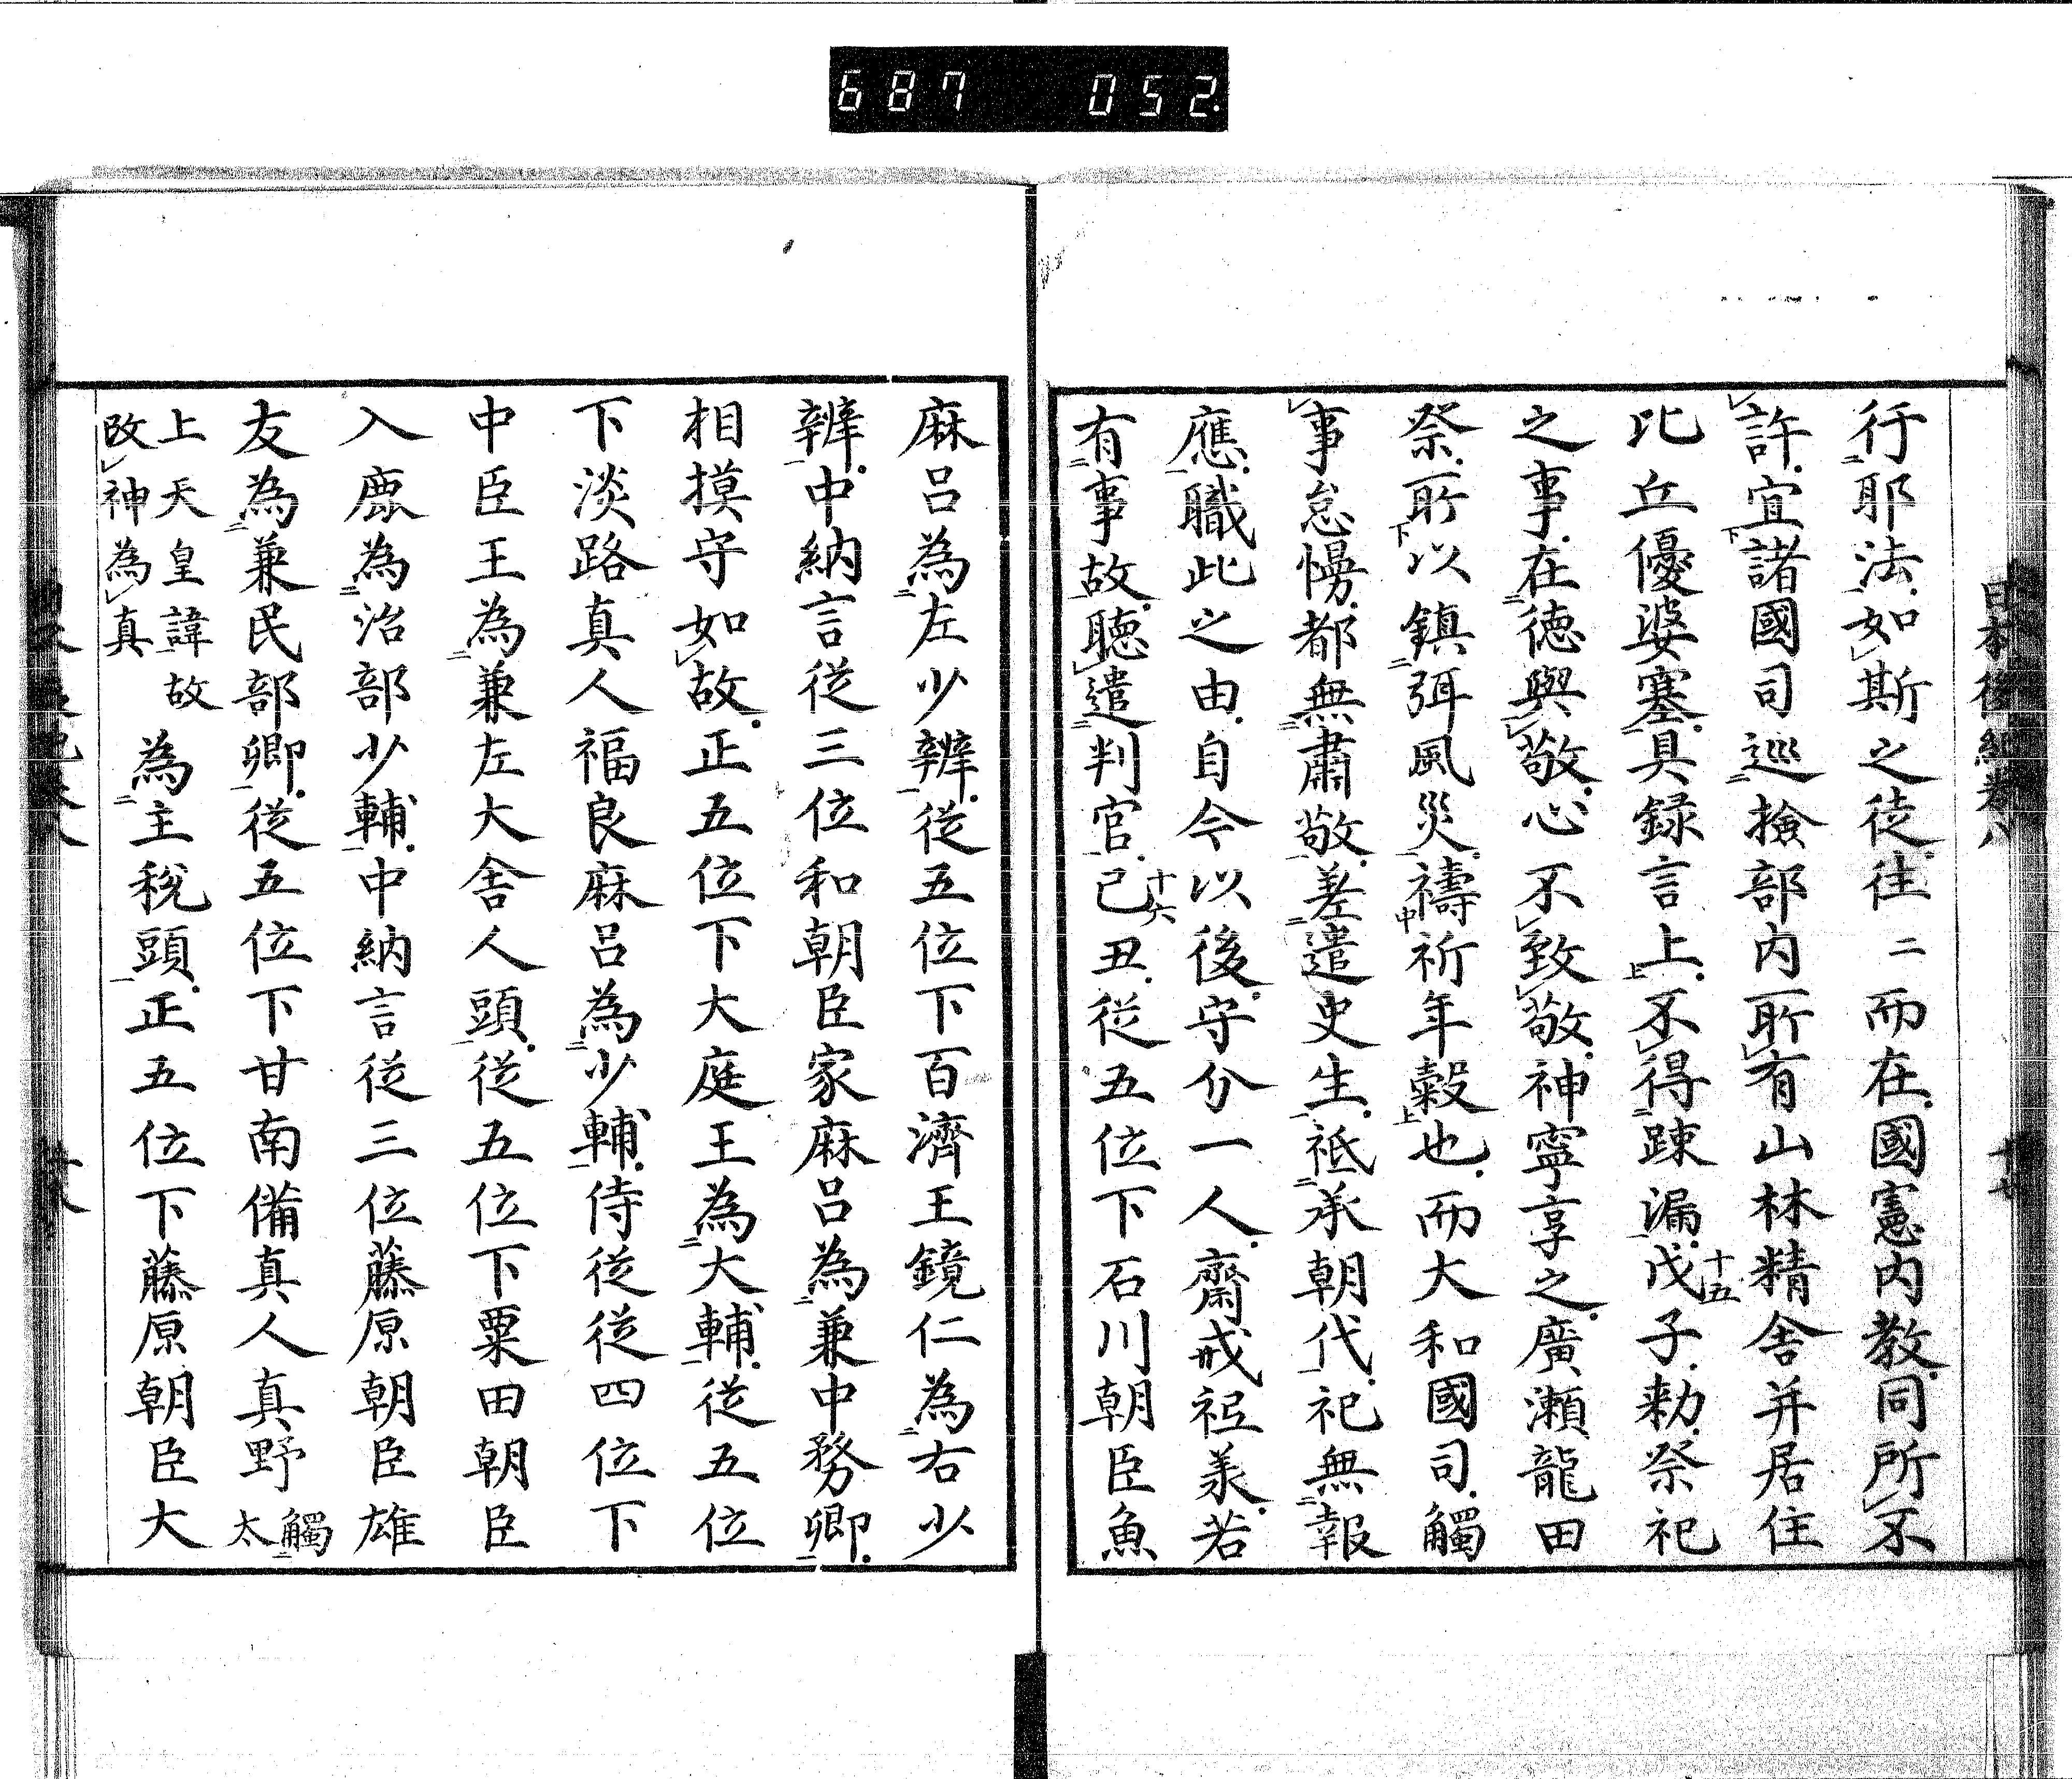 687 052
日本後紀卷八
行耶法如斯之徒往二而在國憲内教同所不
許宜諸國司巡撿部内所有山林精舎并居住
比丘優婆塞具録言上不得踈漏戊子勅祭祀
十五
之事在徳與敬心不致敬神寧享之廣瀬龍田
祭所以鎮弭風災禱祈年糓也而大和國司觸
事怠慢都無肅敬差遣史生祗承朝代祀無報
應職此之由自今以後守介一人齋戒祗羕若
有事故聴遣判官己丑従五位下石川朝臣魚
十六
麻呂為左少辨従五位下百濟王鏡仁為右少
辨中納言従三位和朝臣家麻呂為兼中務卿
相摸守如故正五位下大庭王為大輔従五位
下淡路真人福良麻呂為少輔侍従従四位下
中臣王為兼左大舎人頭従五位下粟田朝臣
入鹿為治部少輔中納言従三位藤原朝臣雄
友為兼民部卿従五位下甘南備真人真野
觸
太
上天皇諱故
改神為真
為主税頭正五位下藤原朝臣大